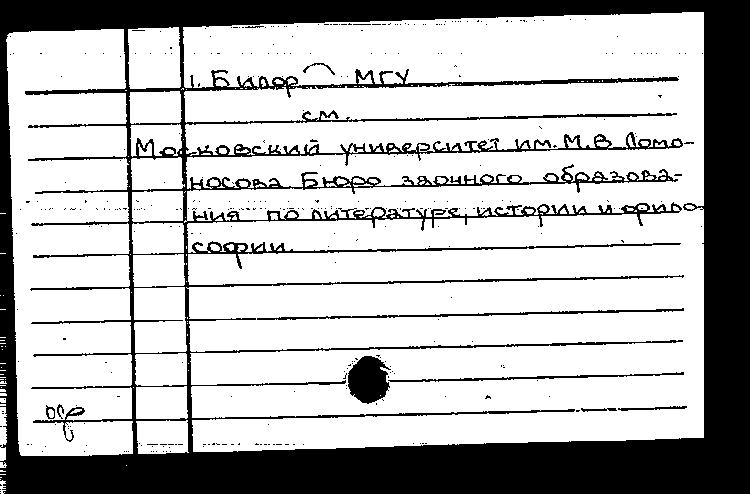 1. Билор МГУ
см.
Московский университет им. М.В Ломо-
носова Бюро заочного образова-
ния по литературе, истории и фило-
софии.